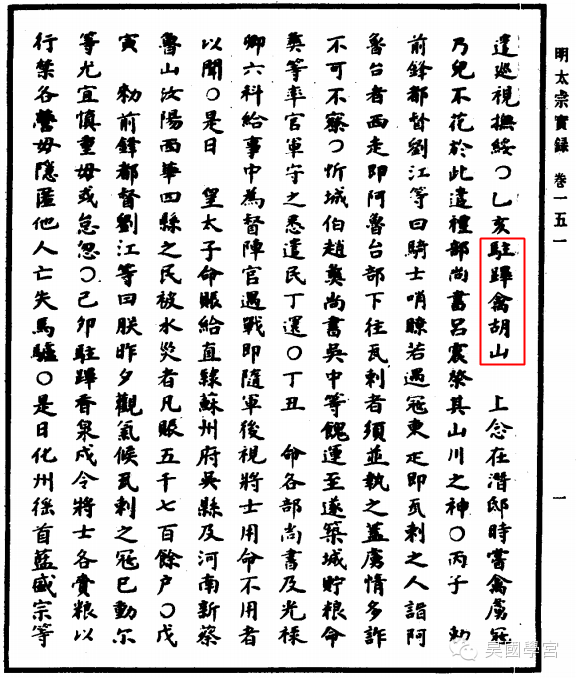 明太宗實録 卷一五一
一
遣巡視撫綏○乙亥駐蹕禽胡山　上念在潛邸時嘗禽虜寇
乃兒不花於此遣禮部尚書呂震祭其山川之神○丙子　勑
前鋒都督劉江等曰騎士哨瞭若遇寇東走即瓦剌之人詣阿
魯台者西走即阿魯台部下往瓦剌者須並執之蓋虜情多詐
不可不察○忻城伯趙彝尚書吳中等餽運至遂築城貯粮命
彝等率官軍守之悉遣民丁還○丁丑　命各部尚書及光祿
卿六科給事中為督陣官遇戰即隨軍後視將士用命不用者
以聞○是日　皇太子命賑給直隸蘇州府吳縣及河南新蔡
魯山汝陽西華四縣之民被水災者凡賑五千七百餘户○戊
寅　勑前鋒都督劉江等曰朕昨夕觀氣候瓦剌之寇已動尔
等尤宜慎重毋或怠忽○己卯駐蹕香泉戍令將士各賫粮以
行禁各營毋隱匿他人亡失馬驢○是日化州猺首藍盛宗等
昊國學宮